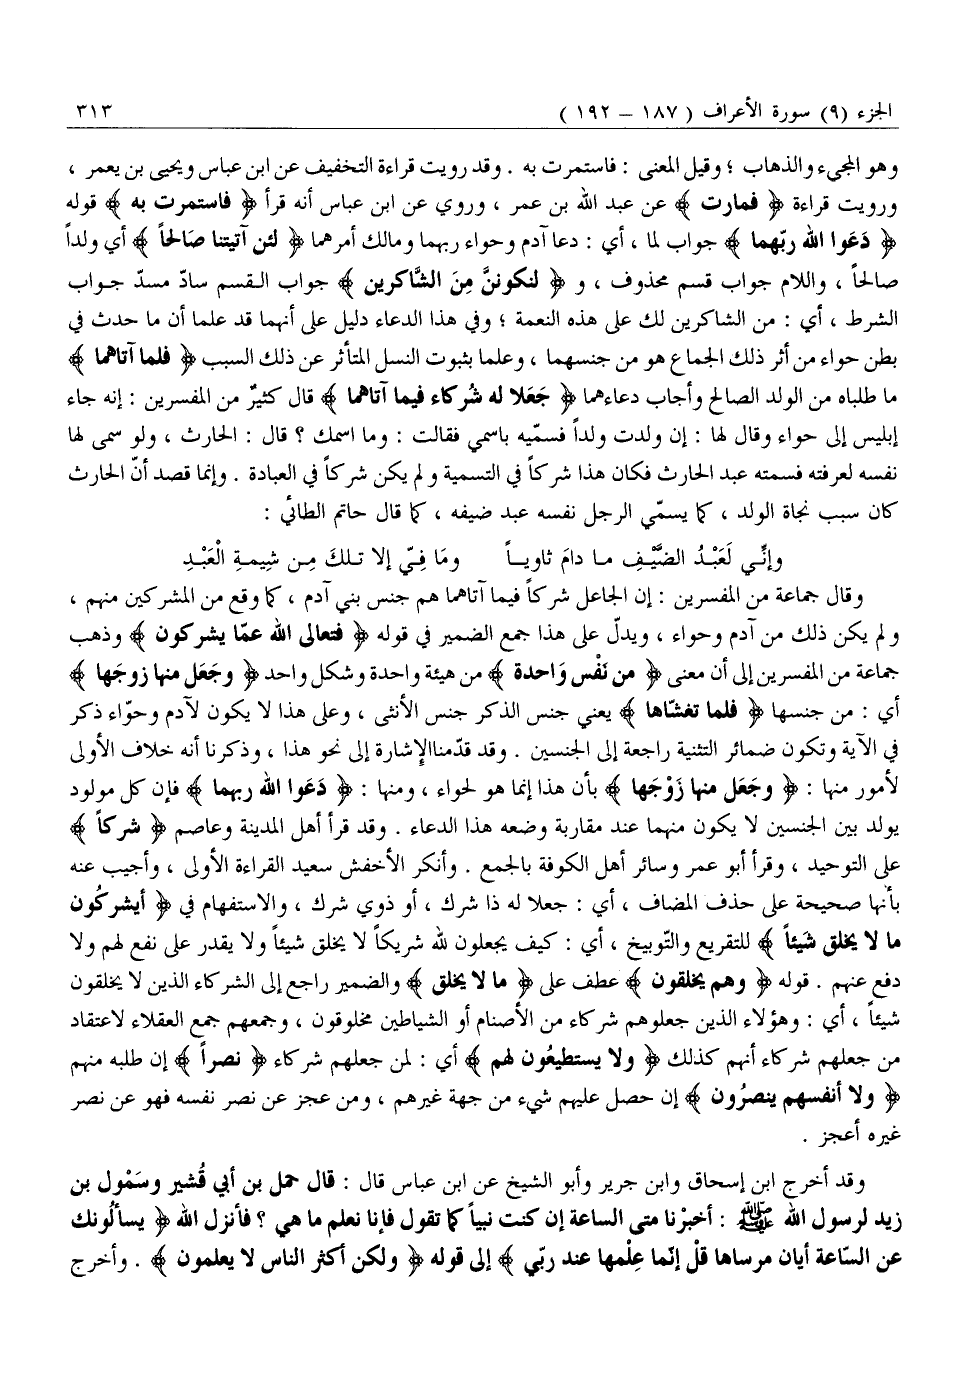 الجزء (٩) سورة الأعراف ( ١٨٧ – ١٩٢ ) ٣١٣
وهو المجيء والذهاب ؛ وقيل المعنى : فاستمرت به . وقد رويت قراءة التخفيف عن ابن عباس ويحيى بن يعمر ،
ورويت قراءة ﴿ فمارت ﴾ عن عبد الله بن عمر ، وروي عن ابن عباس أنه قرأ ﴿ فاستمرت به ﴾ قوله
﴿ دَعَوا الله ربّهما ﴾ جواب لما ، أي : دعا آدم وحواء ربهما ومالك أمرهما ﴿ لئن آتيتنا صَالحاً ﴾ أي ولداً
صالحاً ، واللام جواب قسم محذوف ، و ﴿ لنكوننَّ مِنَ الشَّاكرين ﴾ جواب القسم سادّ مسدّ جواب
الشرط ، أي : من الشاكرين لك على هذه النعمة ؛ وفي هذا الدعاء دليل على أنهما قد علما أن ما حدث في
بطن حواء من أثر ذلك الجماع هو من جنسهما ، وعلما بثبوت النسل المتأثر عن ذلك السبب ﴿ فلما آتاهما ﴾
ما طلباه من الولد الصالح وأجاب دعاءهما ﴿ جَعَلا له شُركاء فيما آتاهما ﴾ قال كثيرٌ من المفسرين : إنه جاء
إبليس إلى حواء وقال لها : إن ولدت ولداً فسمّيه باسمي فقالت : وما اسمك ؟ قال : الحارث ، ولو سمى لها
نفسه لعرفته فسمته عبد الحارث فكان هذا شركاً في التسمية ولم يكن شركاً في العبادة . وإنما قصد أنّ الحارث
كان سبب نجاة الولد ، كما يسمّي الرجل نفسه عبد ضيفه ، كما قال حاتم الطائي :
وإنّي لَعَبْدُ الضَّيْفِ ما دامَ ثاوياً ومَا فِيّ إلا تلكَ مِن شِيمةِ الْعَبْدِ
وقال جماعة من المفسرين : إن الجاعل شركاً فيما آتاهما هم جنس بني آدم ، كما وقع من المشركين منهم ،
ولم يكن ذلك من آدم وحواء ، ويدلّ على هذا جمع الضمير في قوله ﴿ فتعالى الله عمّا يشركون ﴾ وذهب
جماعة من المفسرين إلى أن معنى ﴿ من نَفْس وَاحدة ﴾ من هيئة واحدة وشكل واحد ﴿ وجَعَل منها زوجَها ﴾
أي : من جنسها ﴿ فلما تغشّاها ﴾ يعني جنس الذكر جنس الأنثى ، وعلى هذا لا يكون لآدم وحوّاء ذكر
في الآية وتكون ضمائر التثنية راجعة إلى الجنسين . وقد قدّمنا الإشارة إلى نحو هذا ، وذكرنا أنه خلاف الأولى
لأمور منها : ﴿ وجَعَل منها زَوْجَها ﴾ بأن هذا إنما هو لحواء ، ومنها : ﴿ دَعَوا الله ربهما ﴾ فإن كل مولود
يولد بين الجنسين لا يكون منهما عند مقاربة وضعه هذا الدعاء . وقد قرأ أهل المدينة وعاصم ﴿ شركاً ﴾
على التوحيد ، وقرأ أبو عمر وسائر أهل الكوفة بالجمع . وأنكر الأخفش سعيد القراءة الأولى ، وأجيب عنه
بأنها صحيحة على حذف المضاف ، أي : جعلا له ذا شرك ، أو ذوي شرك ، والاستفهام في ﴿ أيشركُون
ما لا يخلق شَيئاً ﴾ للتقريع والتّوبيخ ، أي : كيف يجعلون لله شريكاً لا يخلق شيئاً ولا يقدر على نفع لهم ولا
دفع عنهم . قوله ﴿ وهم يخلقون ﴾ عطف على ﴿ ما لا يخلق ﴾ والضمير راجع إلى الشركاء الذين لا يخلقون
شيئاً ، أي : وهؤلاء الذين جعلوهم شركاء من الأصنام أو الشياطين مخلوقون ، وجمعهم جمع العقلاء لاعتقاد
من جعلهم شركاء أنهم كذلك ﴿ ولا يستطيعُون لهم ﴾ أي : لمن جعلهم شركاء ﴿ نصراً ﴾ إن طلبه منهم
﴿ ولا أنفسهم ينصرُون ﴾ إن حصل عليهم شيء من جهة غيرهم ، ومن عجز عن نصر نفسه فهو عن نصر
غيره أعجز .
وقد أخرج ابن إسحاق وابن جرير وأبو الشيخ عن ابن عباس قال : قال حمل بن أبي قُشير وسَمْول بن
زيد لرسول الله ﷺ : أخبرْنا متى الساعة إن كنت نبياً كما تقول فإنا نعلم ما هي ؟ فأنزل الله ﴿ يسألُونك
عن السّاعة أيان مرساها قلْ إنّما عِلْمها عند ربّي ﴾ إلى قوله ﴿ ولكن أكثر الناس لا يعلمون ﴾ . وأخرج